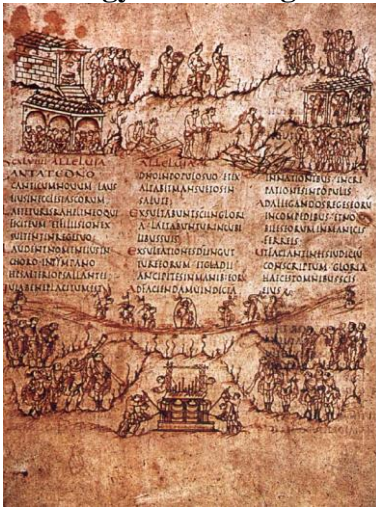 ALLELUIA
CANTATE DNO
CANTICUMNOUUM LAUS
EIUSINECCLESIASCORUM
LAETETURISRAHELINEOQUI
FECITEUM ETFILIISION EX
SULTENTINREGESUO
LAUDENTNOMENEIUSIN
CHORO INTYMPANO
ETPSALTERIOPSALLANTEI
QUIABENEPLACITUMEST
ALLELUIA
DNOINPOPULOSUO ETEX
ALTABITMANSUETOSIN
SALUTE
EXSULTABUNTSCIINGLORI
A LAETABUNTURINCUBI
LIBUSSUIS
EXSULTATIONESDIINGUT
TUREEORUM ETGLADII
ANCIPITESINMANIB:EORU
ADFACIENDAMUINDICTA
INNATIONIBUS INCRE
PATIONESINPOPULIS
ADALLIGANDOSREGESEORU
INCOMPEDIBUS ETNO
BILESEORUMINMANICIS
FERREIS
UTFACIANTINEISIUDICIU
CONSCRIPTUM GLORIA
HAECESTOMNIBUSSCIS
EIUS